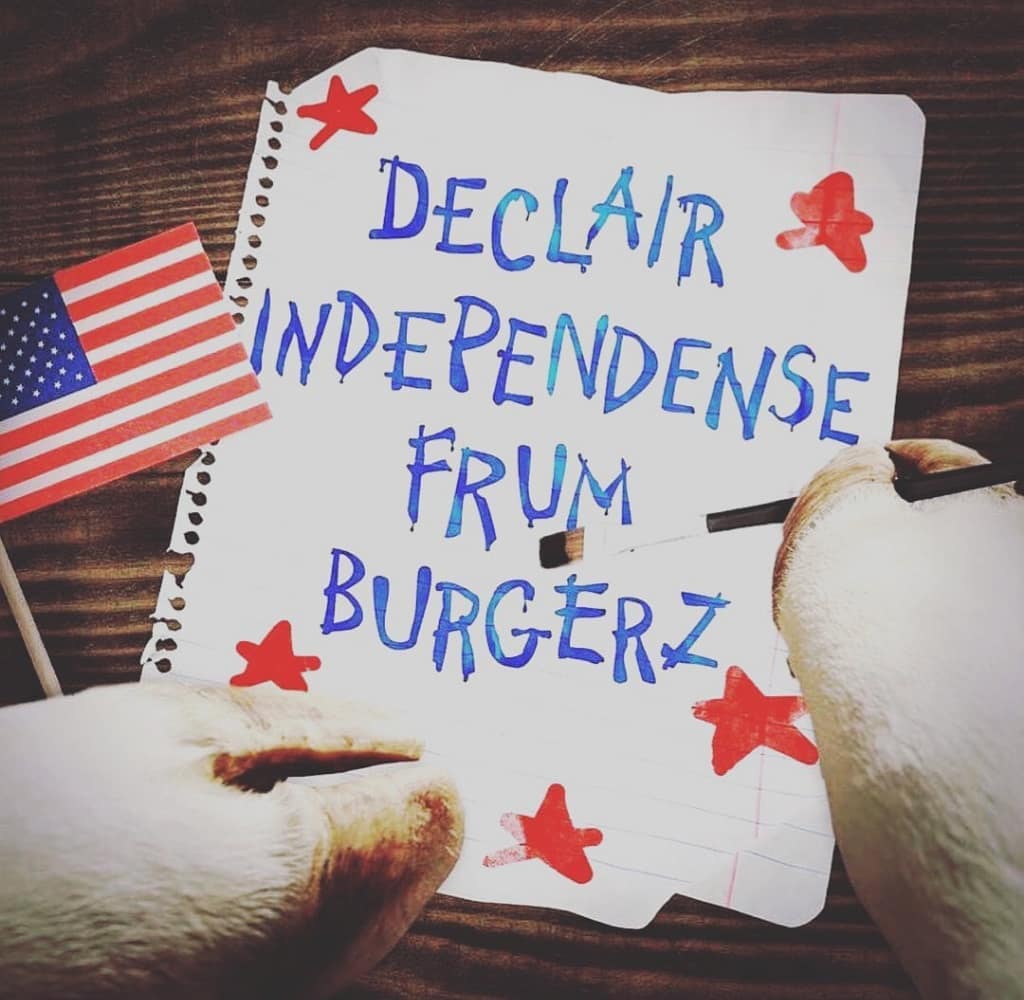 DECLAIR
INDEPENDENSE
FRUM
BURGERZ